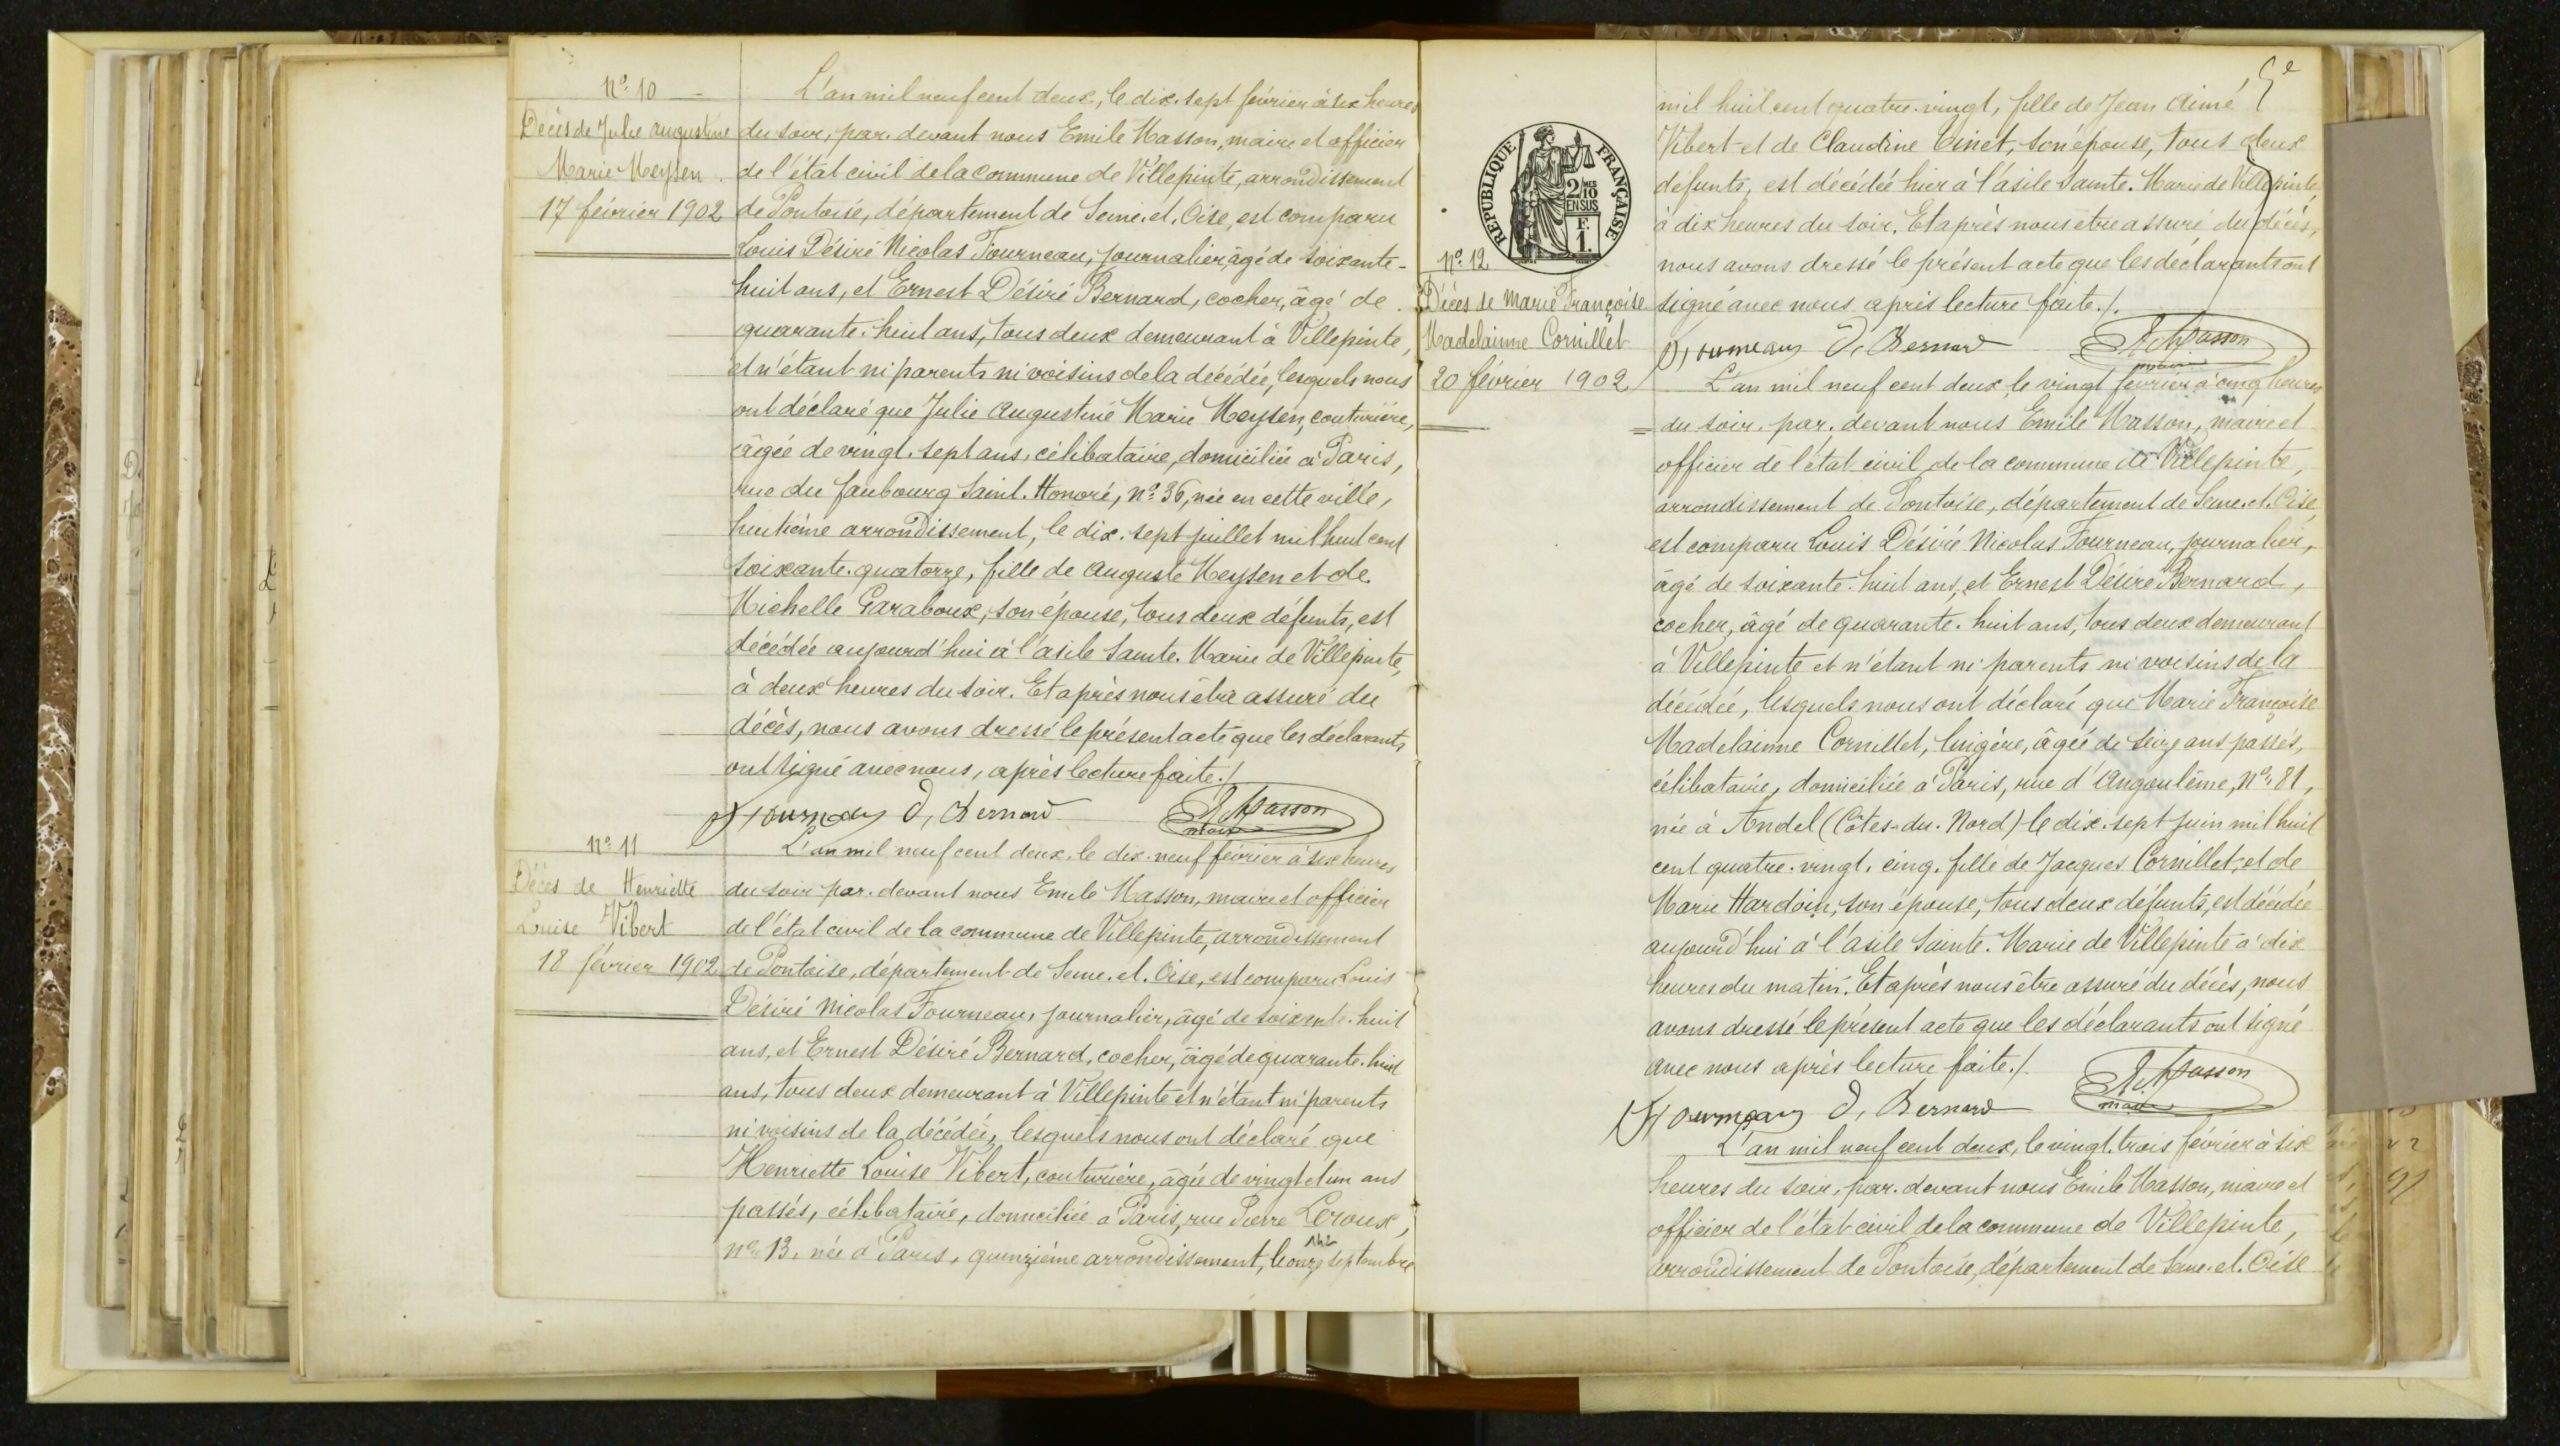 N° 10
Décès de Julie Augustine
Marie Meysen
17 février 1902
L'an mil neuf cent deux, le dix-sept février à six heures
du soir, par-devant nous Emile Masson, maire et officier
de l'état civil de la commune de Villepinte, arrondissement
de Pontoise, département de Seine-et-Oise, est comparu
Louis Désiré Nicolas Fourneau, journalier, âgé de soixante-
huit ans, et Ernest Désiré Bernard, cocher, âgé de
quarante-huit ans, tous deux demeurant à Villepinte,
et n'étant ni parents ni voisins de la décédée, lesquels nous
ont déclaré que Julie Augustine Marie Meysen, couturière,
âgée de vingt-sept ans, célibataire, domiciliée à Paris,
rue du faubourg Saint-Honoré, n° 36, née en cette ville,
huitième arrondissement, le dix-sept juillet mil huit cent
soixante-quatorze, fille de Auguste Meysen et de
Michelle Garaboux, son épouse, tous deux défunts, est
décédée aujourd'hui à l'asile Sainte-Marie de Villepinte,
à deux heures du soir. Et après nous être assuré du
décès, nous avons dressé le présent acte que les déclarants
ont signé avec nous, après lecture faite./.
Fourneau D, Bernard E. Masson
maire
N° 11
Décès de Henriette
Louise Vibert
18 février 1902
L'an mil neuf cent deux, le dix-neuf février à six heures
du soir par-devant nous Emile Masson, maire et officier
de l'état civil de la commune de Villepinte, arrondissement
de Pontoise, département de Seine-et-Oise, est comparu Louis
Désiré Nicolas Fourneau, journalier, âgé de soixante-huit
ans, et Ernest Désiré Bernard, cocher, âgé de quarante-huit
ans, tous deux demeurant à Villepinte et n'étant ni parents
ni voisins de la décédée, lesquels nous ont déclaré que
Henriette Louise Vibert, couturière, âgée de vingt et un ans
passés, célibataire, domiciliée à Paris, rue Pierre Leroux,
n° 13, née à Paris, quinzième arrondissement, le onze septembre
mil huit cent quatre-vingt, fille de Jean Aimé
Vibert et de Claudine Cinet, son épouse, tous deux
défunts, est décédée hier à l'asile Sainte-Marie de Villepinte,
à dix heures du soir. Et après nous être assuré du décès,
nous avons dressé le présent acte que les déclarants ont
signé avec nous après lecture faite./.
Fourneau D, Bernard E. Masson
maire
RÉPUBLIQUE FRANÇAISE
2/10 MES
EN SUS
F.
1.
N° 12
Décès de Marie Françoise
Madelainne Cornillet
20 février 1902
L'an mil neuf cent deux, le vingt février à cinq heures
du soir, par-devant nous Emile Masson, maire et
officier de l'état civil de la commune de Villepinte,
arrondissement de Pontoise, département de Seine-et-Oise,
est comparu Louis Désiré Nicolas Fourneau, journalier,
âgé de soixante-huit ans, et Ernest Désiré Bernard,
cocher, âgé de quarante-huit ans, tous deux demeurant
à Villepinte et n'étant ni parents ni voisins de la
décédée, lesquels nous ont déclaré que Marie Françoise
Madelainne Cornillet, lingère, âgée de seize ans passés,
célibataire, domiciliée à Paris, rue d'Angoulême, N° 81,
née à Andel (Côtes-du-Nord) le dix-sept juin mil huit
cent quatre-vingt-cinq, fille de Jacques Cornillet, et de
Marie Hardoin, son épouse, tous deux défunts, est décédée
aujourd'hui à l'asile Sainte-Marie de Villepinte à dix
heures du matin. Et après nous être assuré du décès, nous
avons dressé le présent acte que les déclarants ont signé
avec nous après lecture faite./.
Fourneau D, Bernard E. Masson
maire
L'an mil neuf cent deux, le vingt-trois février à six
heures du soir, par-devant nous Emile Masson, maire et
officier de l'état civil de la commune de Villepinte,
arrondissement de Pontoise, département de Seine-et-Oise